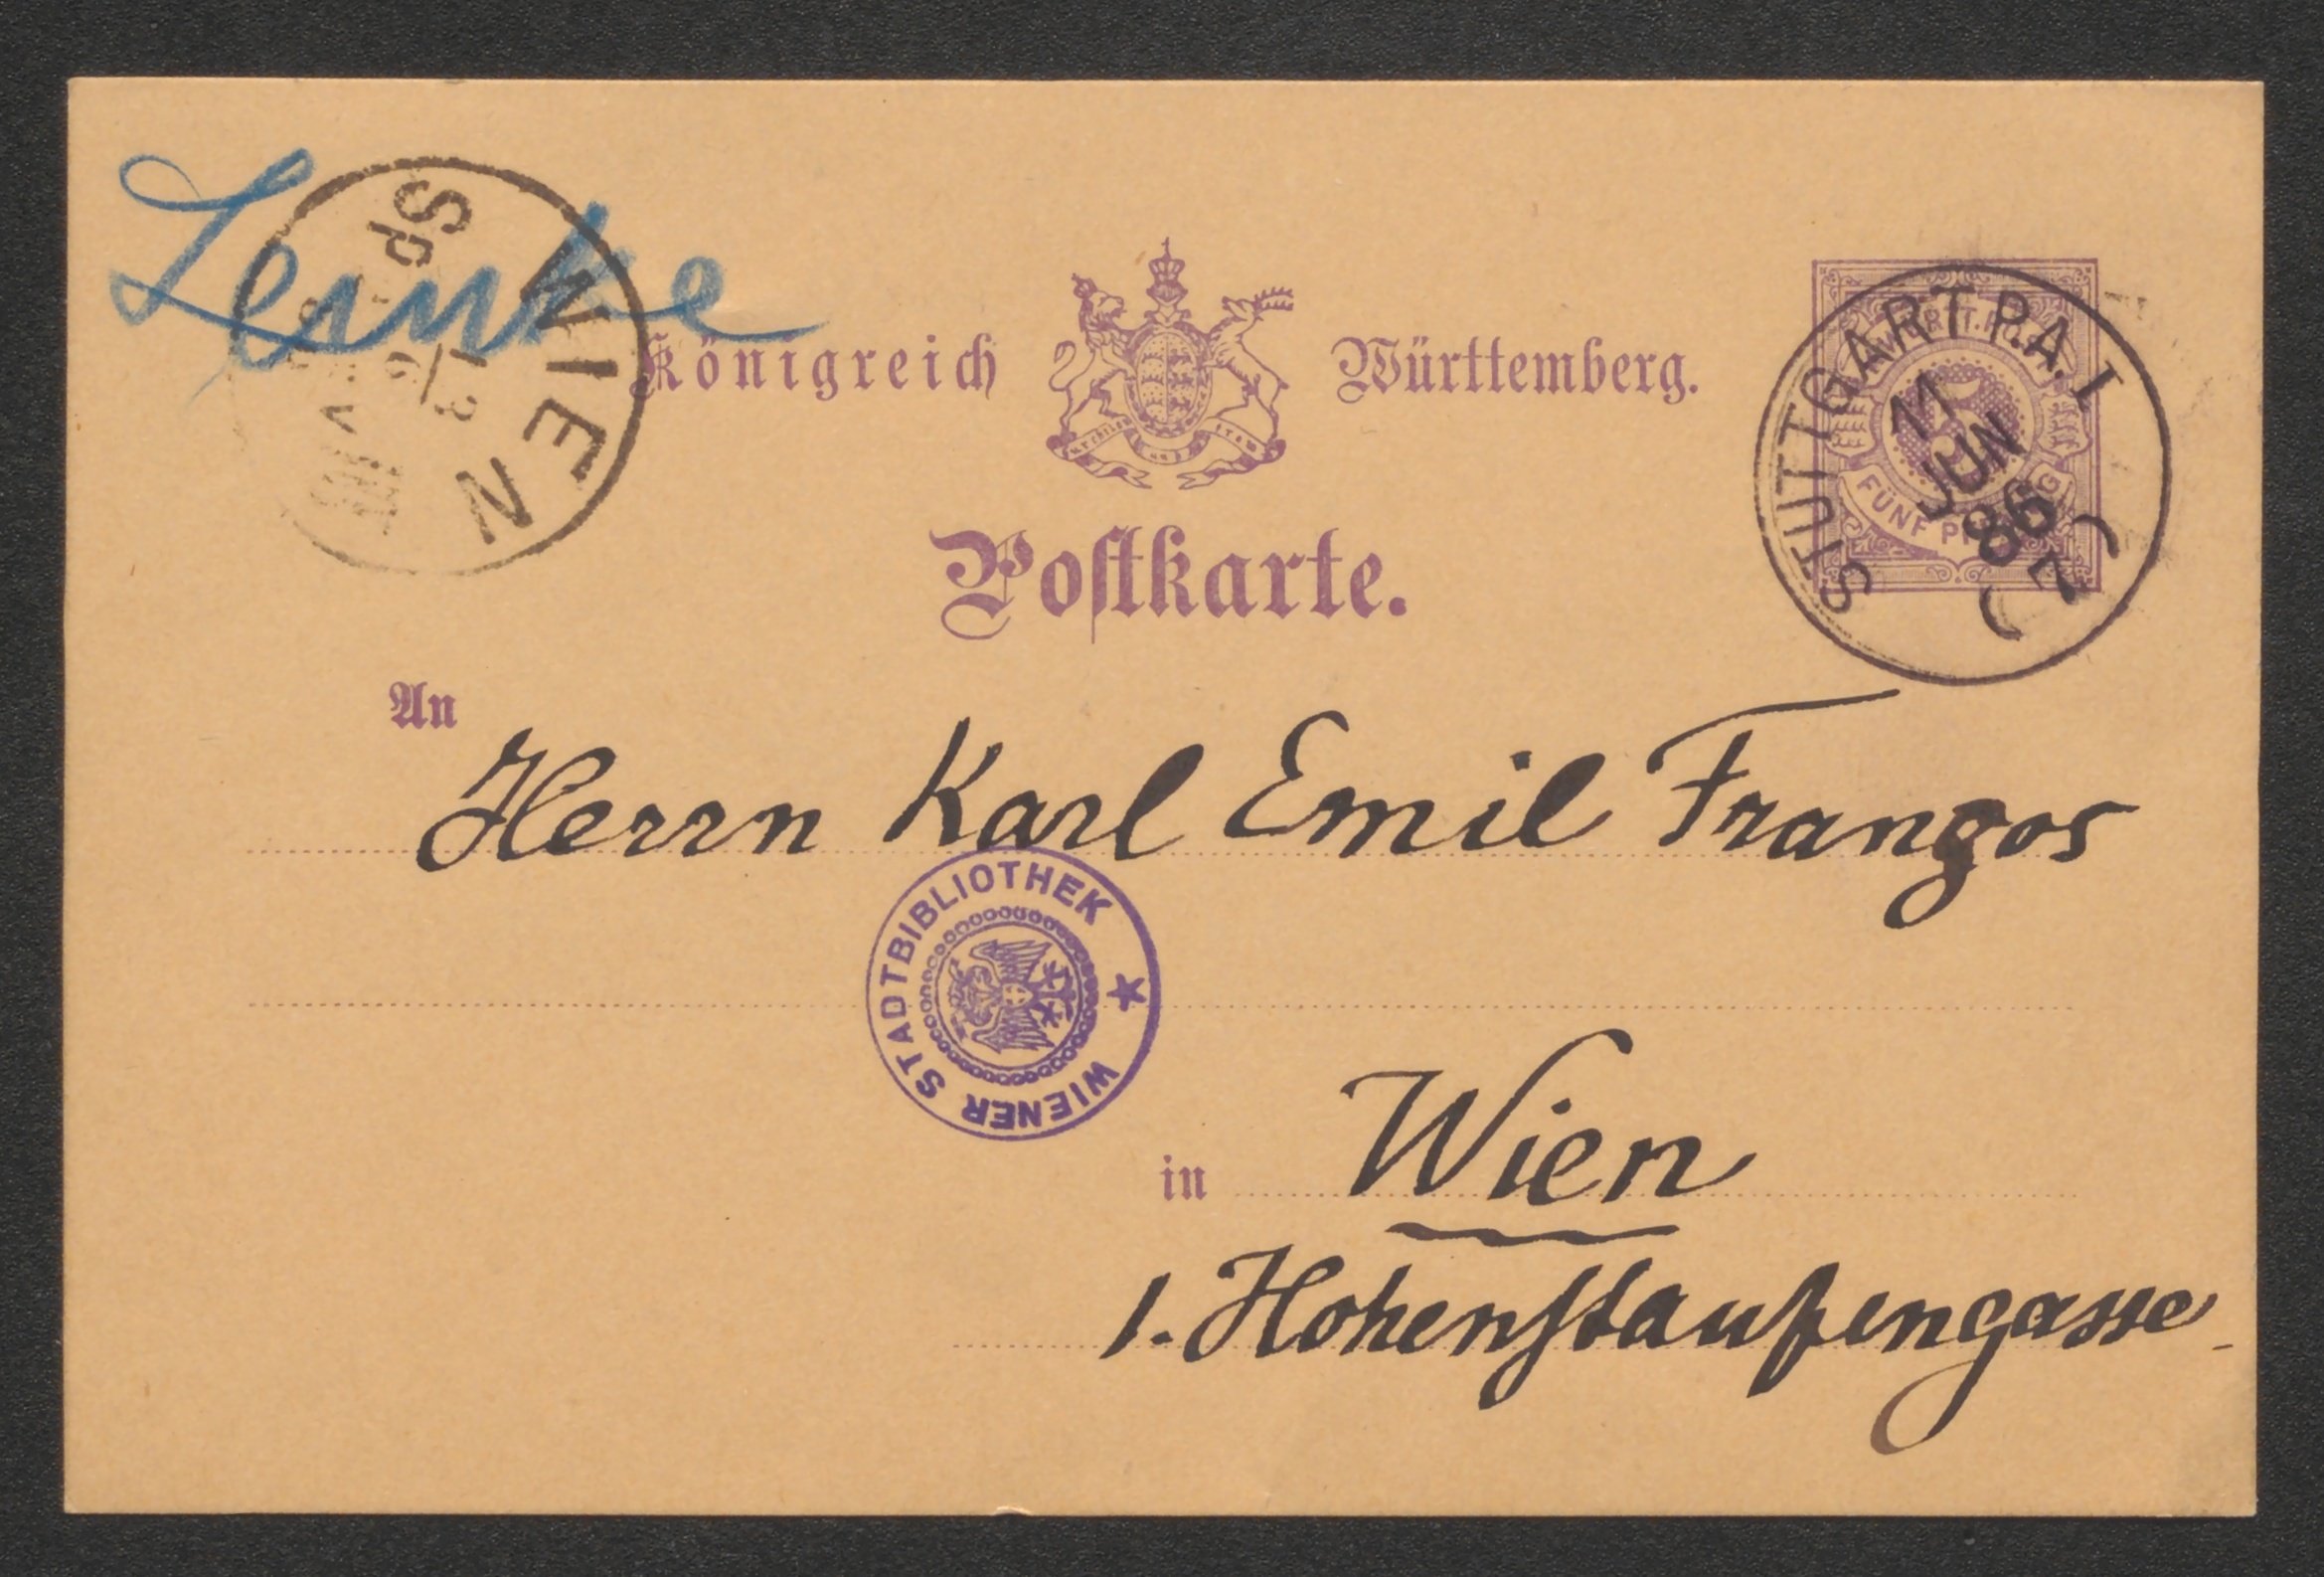 Lemke
WIEN
Königreich Württemberg.
STUTTGART P.A. I
11
JUN
86
7
FÜNF
Postkarte.
An
Herrn Karl Emil Franzos
WIENER STADTBIBLIOTHEK
in Wien
1. Hohenstaufengasse